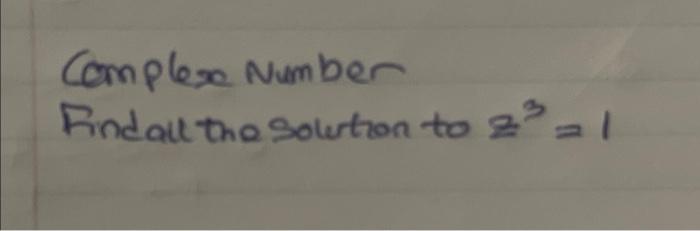 Complex Number
Find all the Solution to z³ = 1